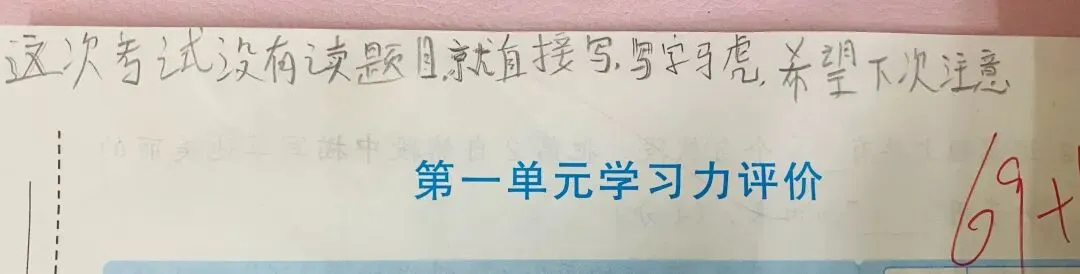 这次考试没有读题目,就直接写,写字马虎,希望下次注意
第一单元学习力评价
69+